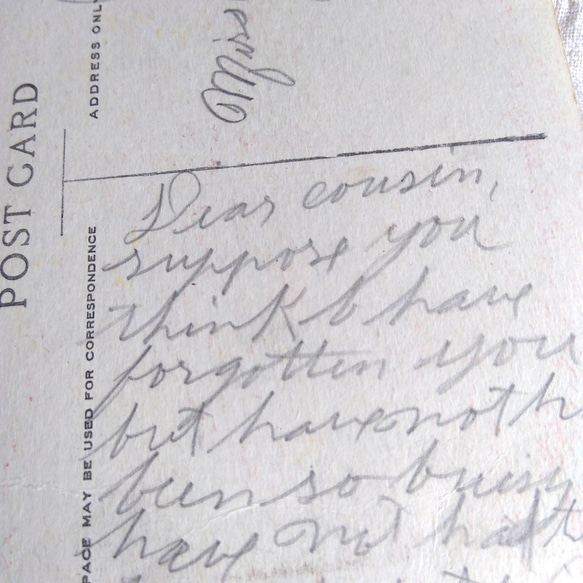 POST CARD
ADDRESS ONLY
PACE MAY BE USED FOR CORRESPONDENCE
Dear cousin,
suppose you
think I have
forgotten you
but have not h
been so buisy
have not hadt